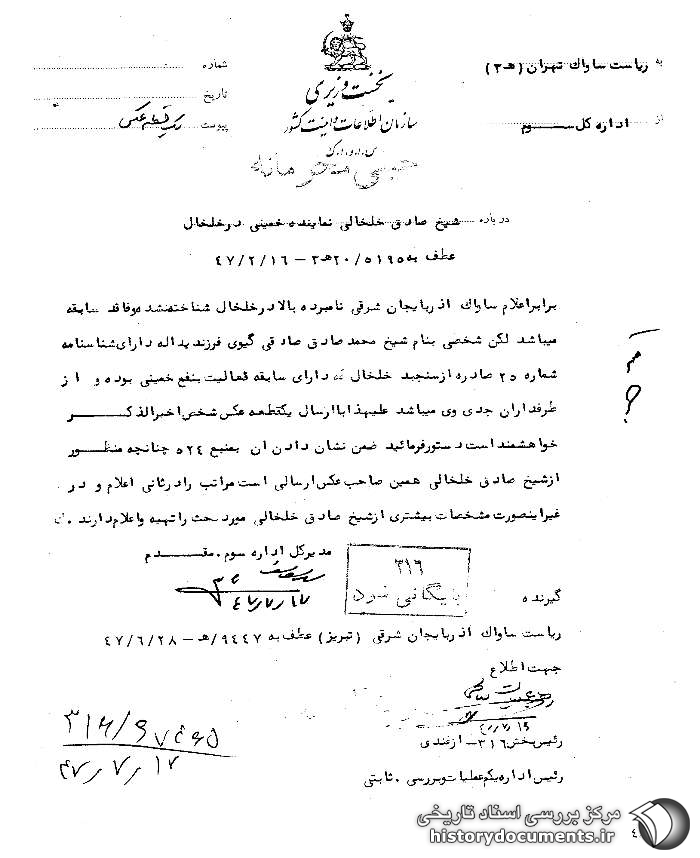 به ریاست ساواک تهران (ه‍ ۳)
از اداره کل سوم
نخست وزیری
سازمان اطلاعات و امنیت کشور
س.ا.و.ا.ک
شماره
تاریخ
پیوست یک قطعه عکس
خیلی محرمانه
درباره شیخ صادق خلخالی نماینده خمینی در خلخال
عطف به ۲۰/۵۱۹۵ه‍ ۳ – ۴۷/۲/۱۶
برابر اعلام ساواک آذربایجان شرقی نامبرده بالا در خلخال شناخته نشد و فاقد سابقه
میباشد لکن شخصی بنام شیخ محمد صادق صادقی گیوی فرزند یداله دارای شناسنامه
شماره ۲۵ صادره از سنجبد خلخال که دارای سابقه فعالیت بنفع خمینی بوده و از
طرفداران جدی وی میباشد علیهذا با ارسال یکقطعه عکس شخص اخیرالذکر
خواهشمند است دستور فرمائید ضمن نشان دادن آن بمنبع ۵۲۴ چنانچه منظور
از شیخ صادق خلخالی همین صاحب عکس ارسالی است مراتب را در ثانی اعلام و در
غیر اینصورت مشخصات بیشتری از شیخ صادق خلخالی مورد بحث را تهیه و اعلام دارند.
مدیر کل اداره سوم. مقدم
۳۱۶
بایگانی شود
گیرنده
ریاست ساواک آذربایجان شرقی (تبریز) عطف به ۹۴۴۷/ه‍ – ۴۷/۶/۲۸
جهت اطلاع
رئیس بخش ۳۱۶ – ازغندی
رئیس اداره یکم عملیات و بررسی. ثابتی
۴۷/۷/۱۲
مرکز بررسی اسناد تاریخی
historydocuments.ir